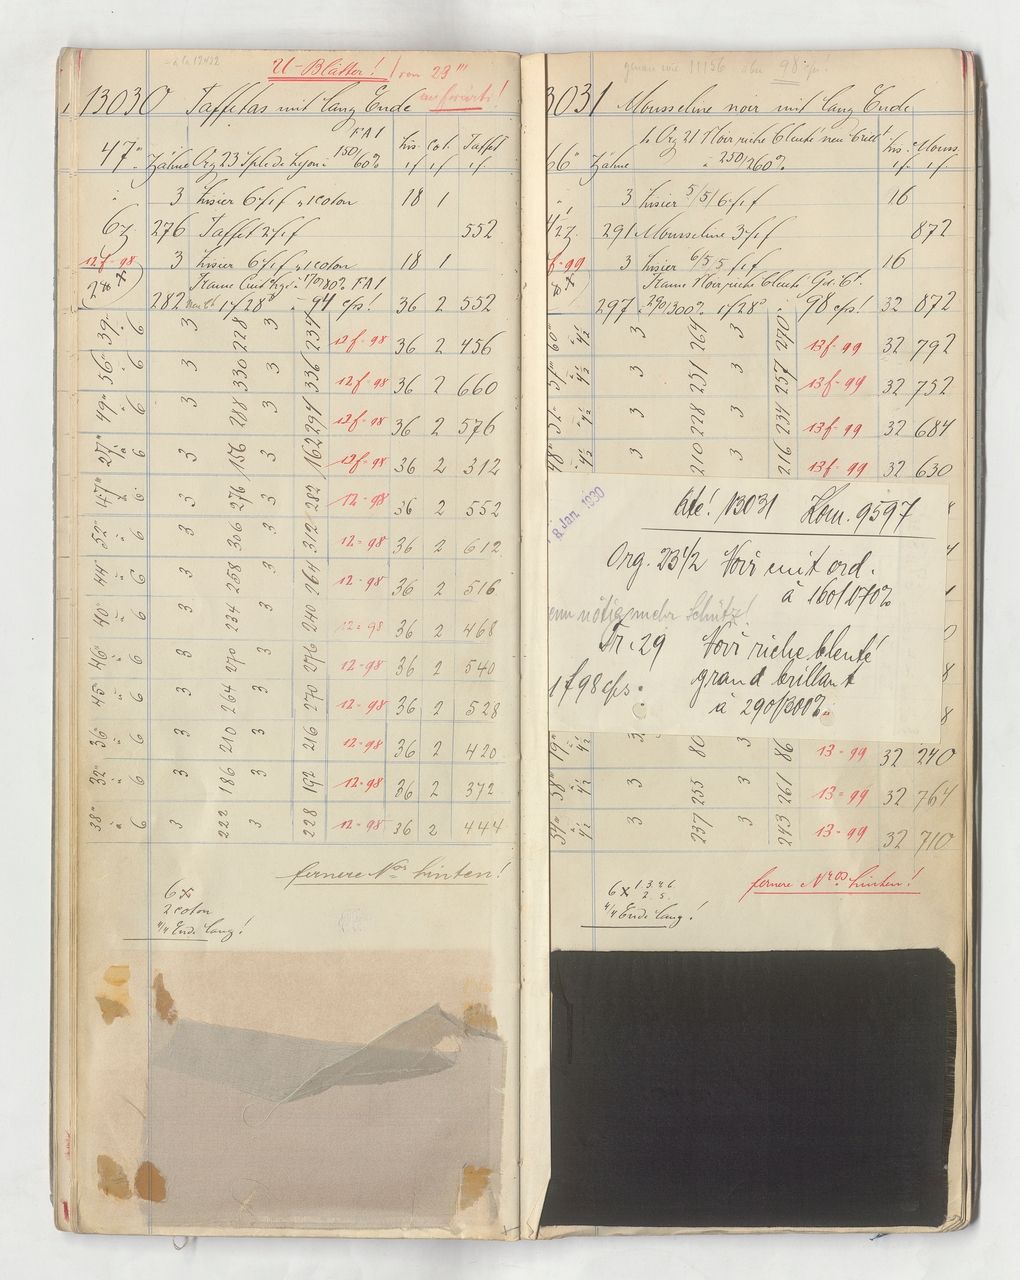 U-Blätter! von 23'''
aufwärts!
13030 Taffetas mit lang Ende
FA1
47" Zähne Org 23 à 150/60% lis. cot. Taffet
1f 1f 1f
3 Lisier 6f 1f u 1 coton 18 1
6z 276 Taffet 2f 1f 552
12f-98 3 Lisier 6f 1f u 1 coton 18 1
2 x x Trame à 170/80% FA1
282 1f 28d - 94 cps! 36 2 552
39" 6 3 228 3 234 12f-98 36 2 456
56" 6 3 330 3 336 12f-98 36 2 660
49" 6 3 288 3 294 12f-98 36 2 576
27" 6 3 156 3 162 12f-98 36 2 312
47" 6 3 276 3 282 12=98 36 2 552
52" 6 3 306 3 312 12=98 36 2 612
44" 6 3 258 3 264 12=98 36 2 516
40" 6 3 234 3 240 12=98 36 2 468
46" 6 3 270 3 276 12=98 36 2 540
45" 6 3 264 3 270 12-98 36 2 528
36" 6 3 210 3 216 12-98 36 2 420
32" 6 3 186 3 192 12-98 36 2 372
38" 6 3 222 3 228 12-98 36 2 444
fernere Nos hinten!
6 x
2 coton
4/4 Ende lang!
genau wie 11156 98 cps!
3031 Mousseline noir mit lang Ende
Org 21 Noir riche blenté neu brill
66" Zähne à 250/260% lis. Mouss.
1f 1f
3 Lisier 5/5/6f 1f 16
291 Mousseline 3f 1f 872
f-99 3 Lisier 6/5/5 f 1f 16
x x Trame Noir riche blenté Gd. bt.
297 290/300% 1f 28d : 98 cps! 32 872
60" 4½ 3 264 3 270 13f-99 32 792
57" 4½ 3 251 3 257 13f-99 32 752
4½ 3 228 3 234 13f-99 32 684
48" 4½ 210 216 13f-99 32 630
8. Jan. 1930
13031 Kom. 9597
Org. 23½ Noir mit ord.
à 160/170%
nötig mehr Schütze!
Tr. 29 Noir riche blenté
1 f 98 cps. grand brillant
à 290/300%.
19" 4½ 80 3 86 13-99 32 240
58" 4½ 3 255 3 261 13=99 32 764
54" 4½ 3 237 3 243 13-99 32 710
fernere Nros hinten!
6 x 1 3 4 6
2 5.
4/4 Ende lang!